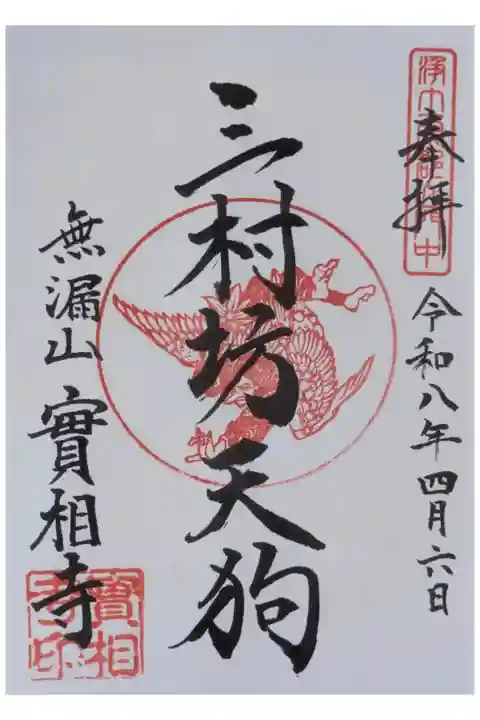 奉拝
令和八年四月六日
三村坊天狗
無漏山 實相寺
實相寺印